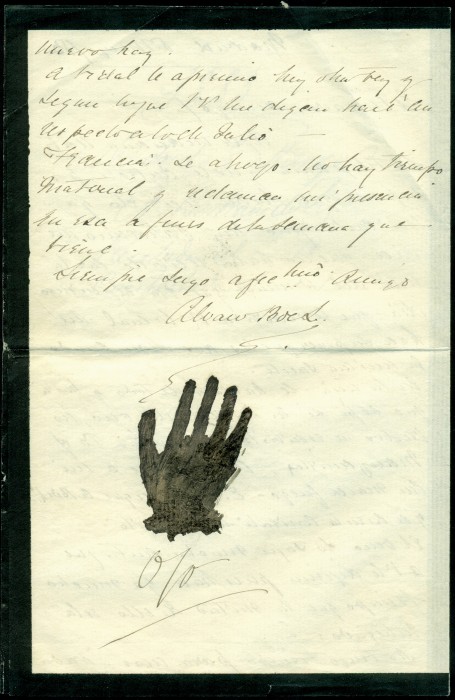 nuevo hay.
A Vidal le apremio hoy otra vez y
segun lo que Vd me digan haré en
respecto a lo de Julio
Francia. Se ahogo. No hay tiempo
material y reclaman mi presencia
en esa a fines de la semana que
viene.
Siempre suyo afecmo amigo
Alvaro
Ojo